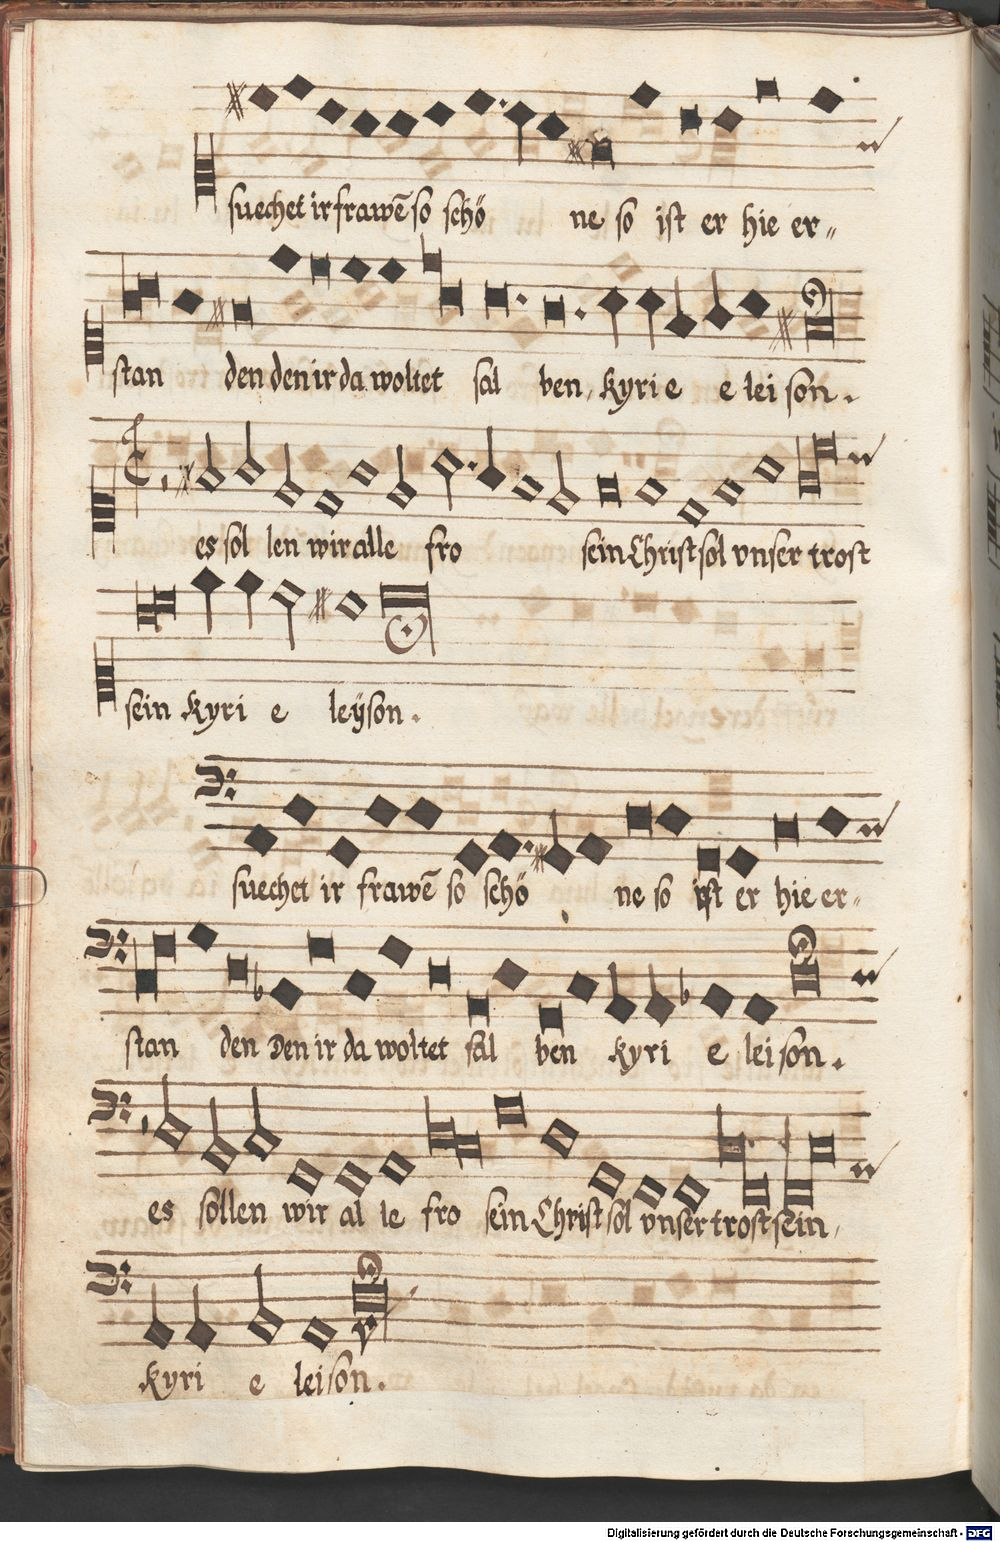 suechet ir frawē so schö ne so ist er hie er„
stan den den ir da woltet sal ben, kyri e e lei son.
es sol len wir alle fro sein Christ sol vnser trost
sein kyri e leÿson.
suechet ir frawē so schö ne so ist er hie er„
stan den Den ir da woltet sal ben kyri e lei son.
es sollen wir al le fro sein Christ sol vnser trost sein,
kyri e lei son.
Digitalisierung gefördert durch die Deutsche Forschungsgemeinschaft - DFG